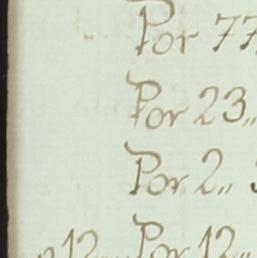 Por 77
Por 23,,
Por 2,,
912 Por 12,,